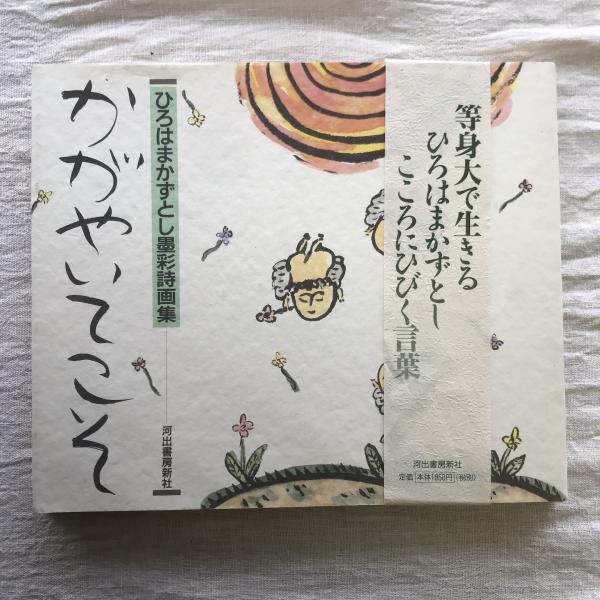 かがやいてこそ
ひろはまかずとし墨彩詩画集
河出書房新社
等身大で生きる
ひろはまかずとし
こころにひびく言葉
河出書房新社
定価 本体1850円 (税別)